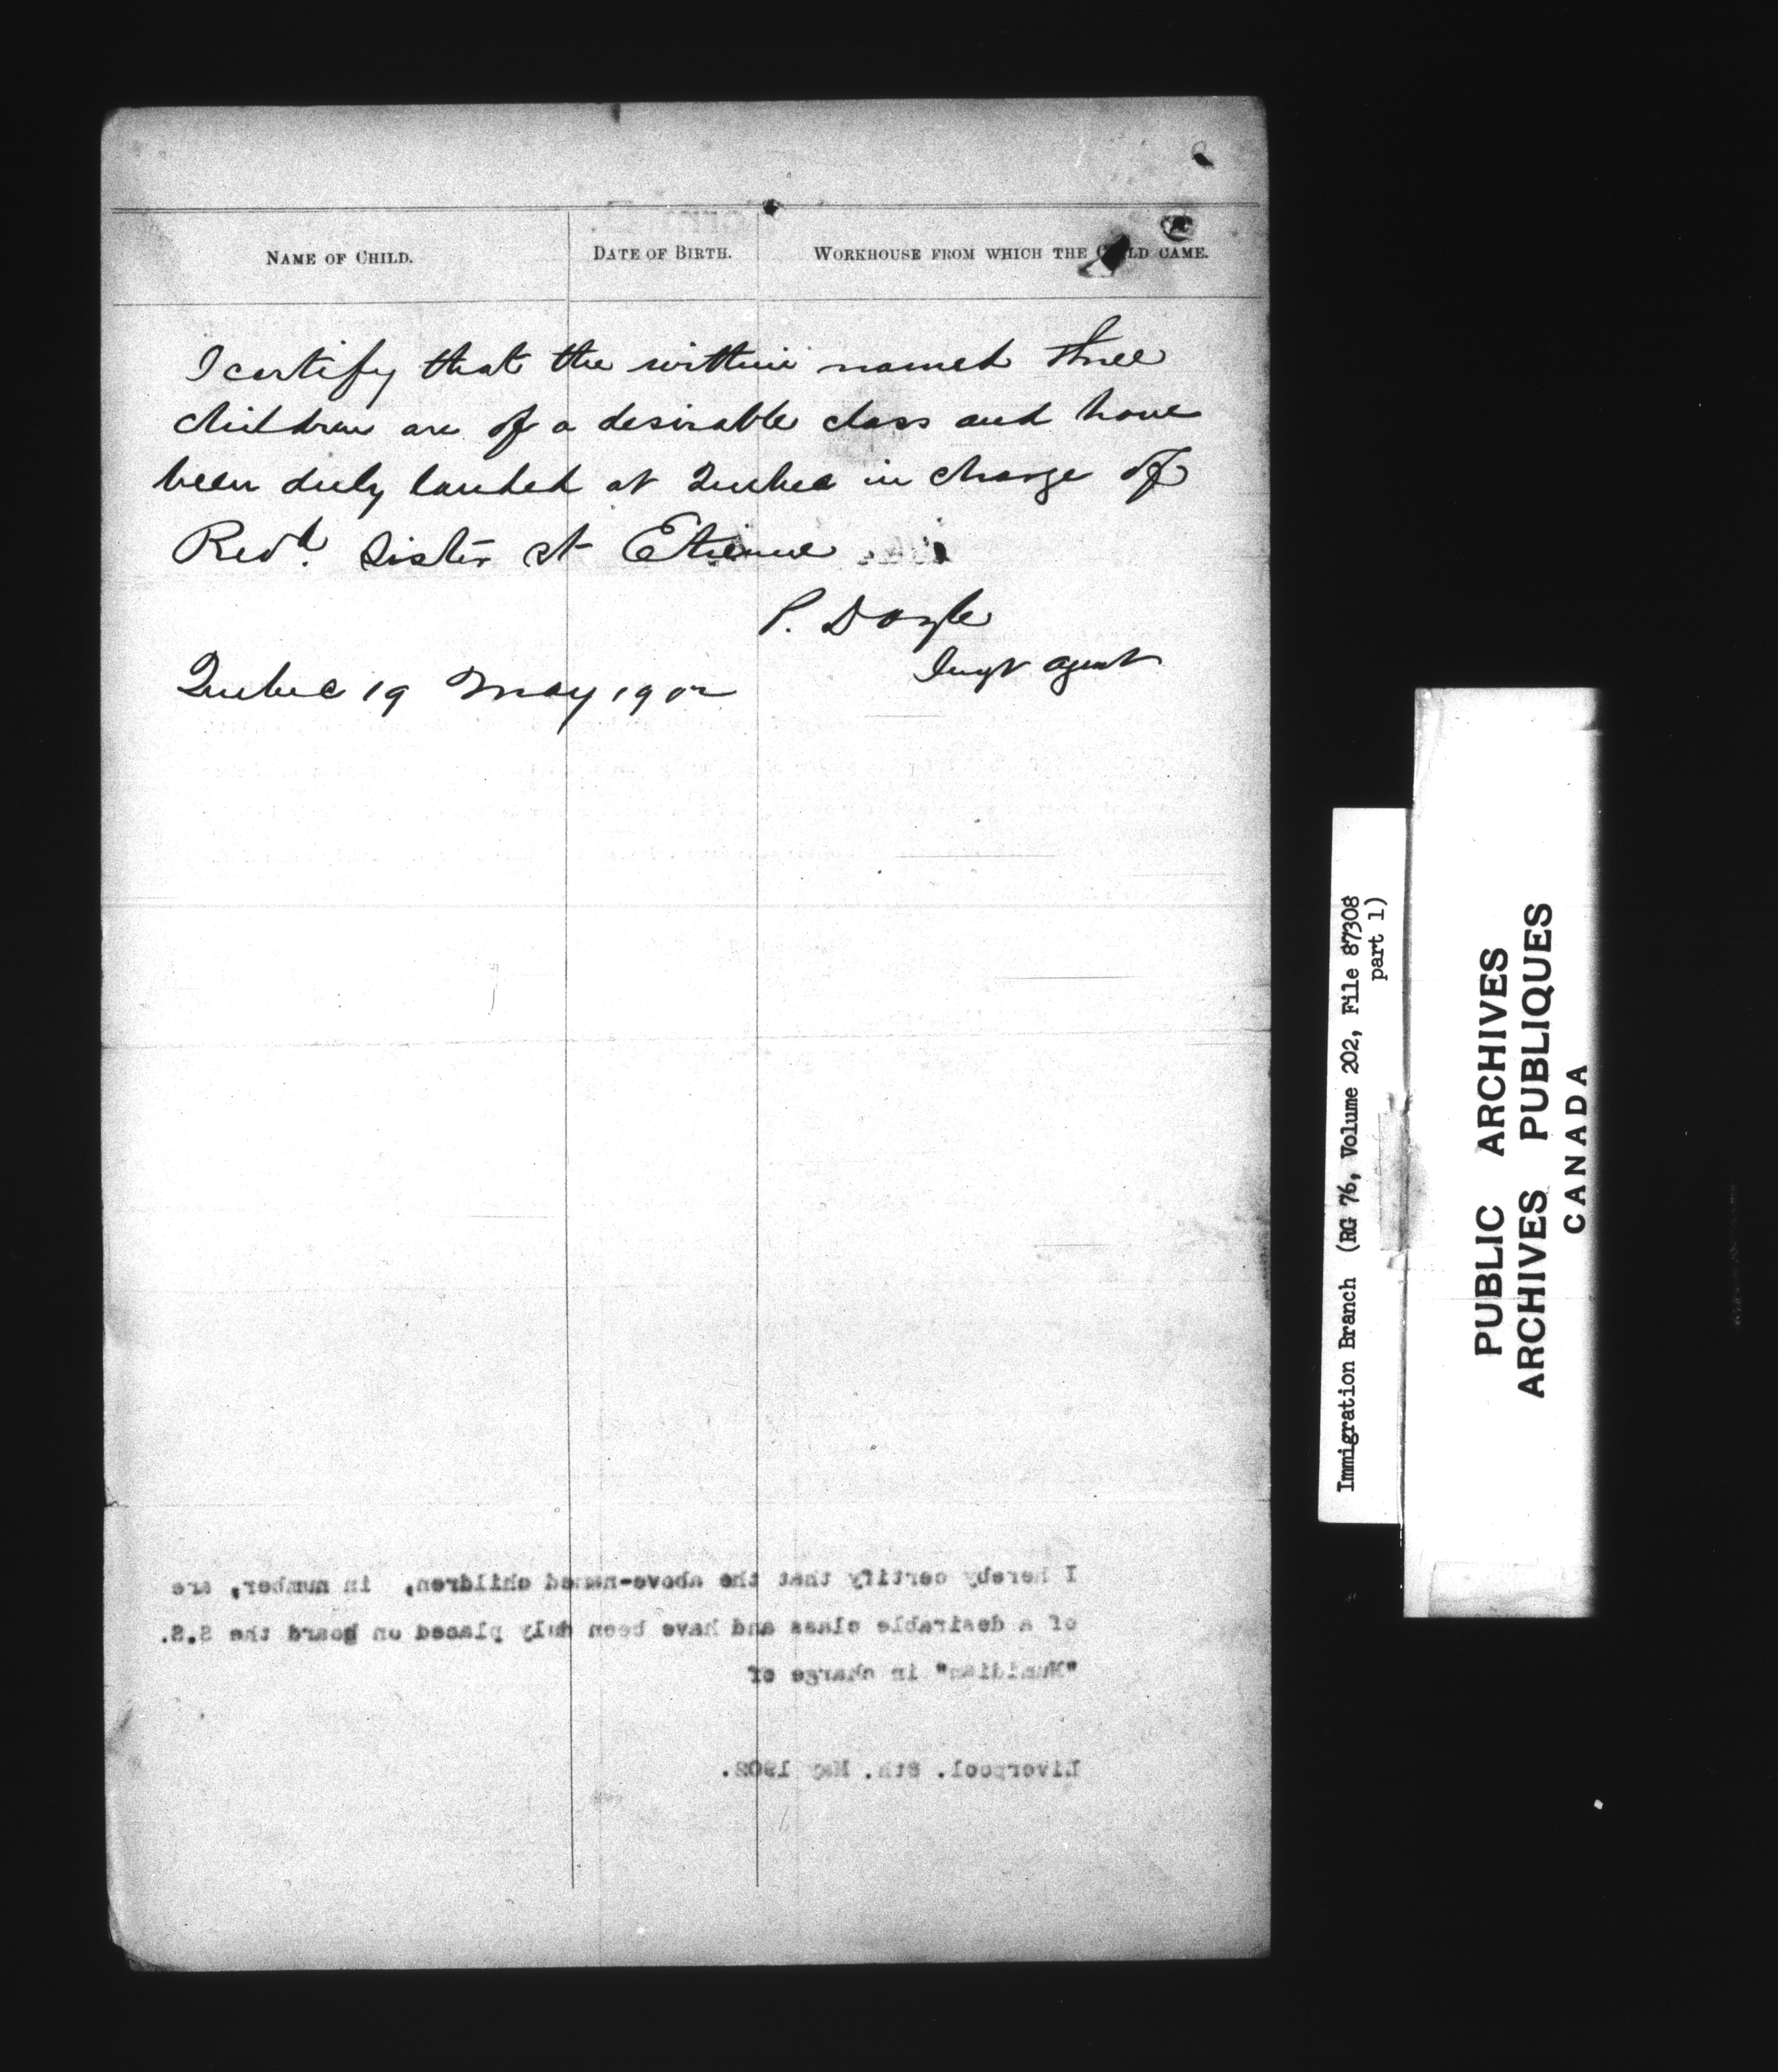 NAME OF CHILD. DATE OF BIRTH. WORKHOUSE FROM WHICH THE CHILD CAME.
I certify that the within named three
children are of a desirable class and have
been duly landed at Quebec in charge of
Revd. Sister St Etienne
P. Doyle
Imgt agent
Quebec 19 May 1902
I hereby certify that the above-named children, in number, are
of a desirable class and have been duly placed on board the S.S.
"Numidian" in charge of
Liverpool. 8th. May 1902.
Immigration Branch (RG 76, Volume 202, File 87308
part 1)
PUBLIC ARCHIVES
ARCHIVES PUBLIQUES
CANADA